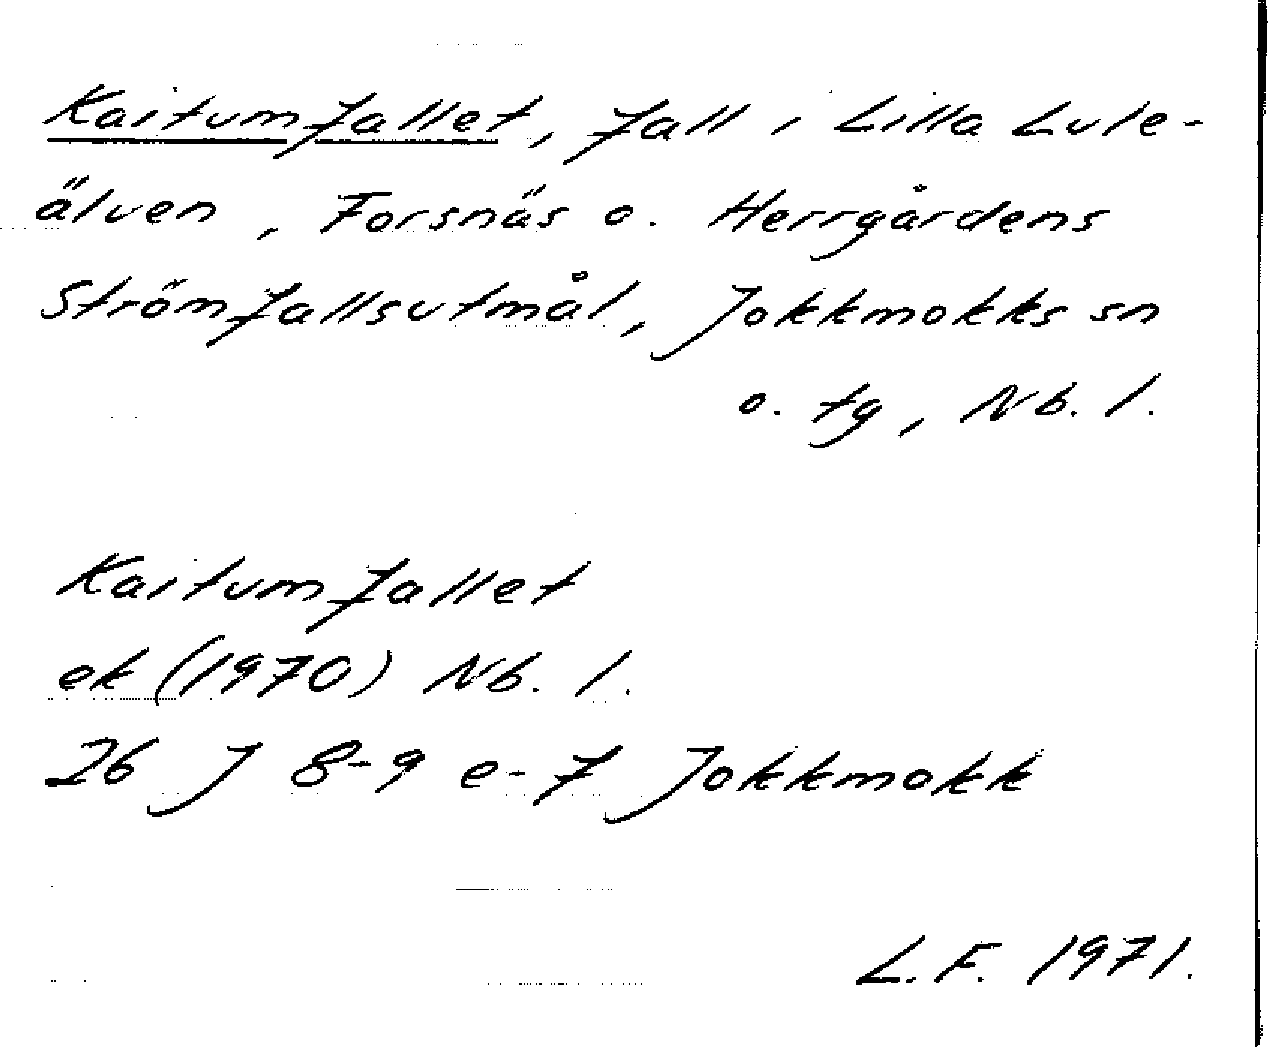 Kaitumfallet, fall i Lilla Lule-
älven, Forsnäs o. Herrgårdens
Strömfallsutmål, Jokkmokks sn
o. tg, Nb. l.
Kaitumfallet
ek (1970) Nb. l.
26 J 8-9 e-f Jokkmokk
L.F. 1971.